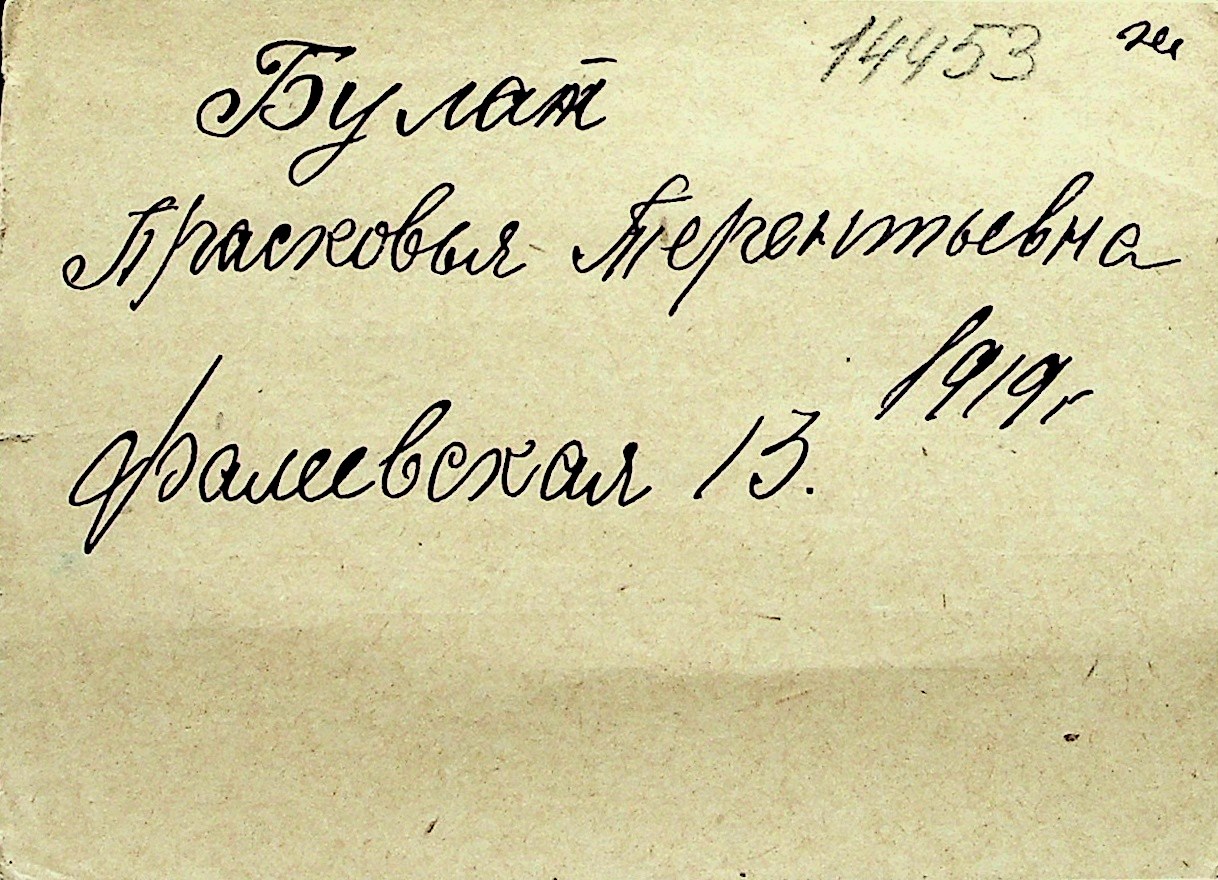 14453 ж
Булат
Прасковья Терентьевна
1919г
Фалеевская 13.